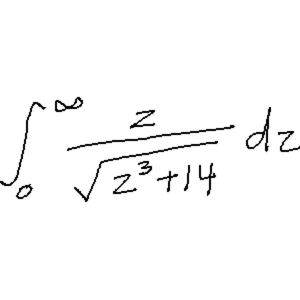 ∫₀^∞ z / √(z³+14) dz